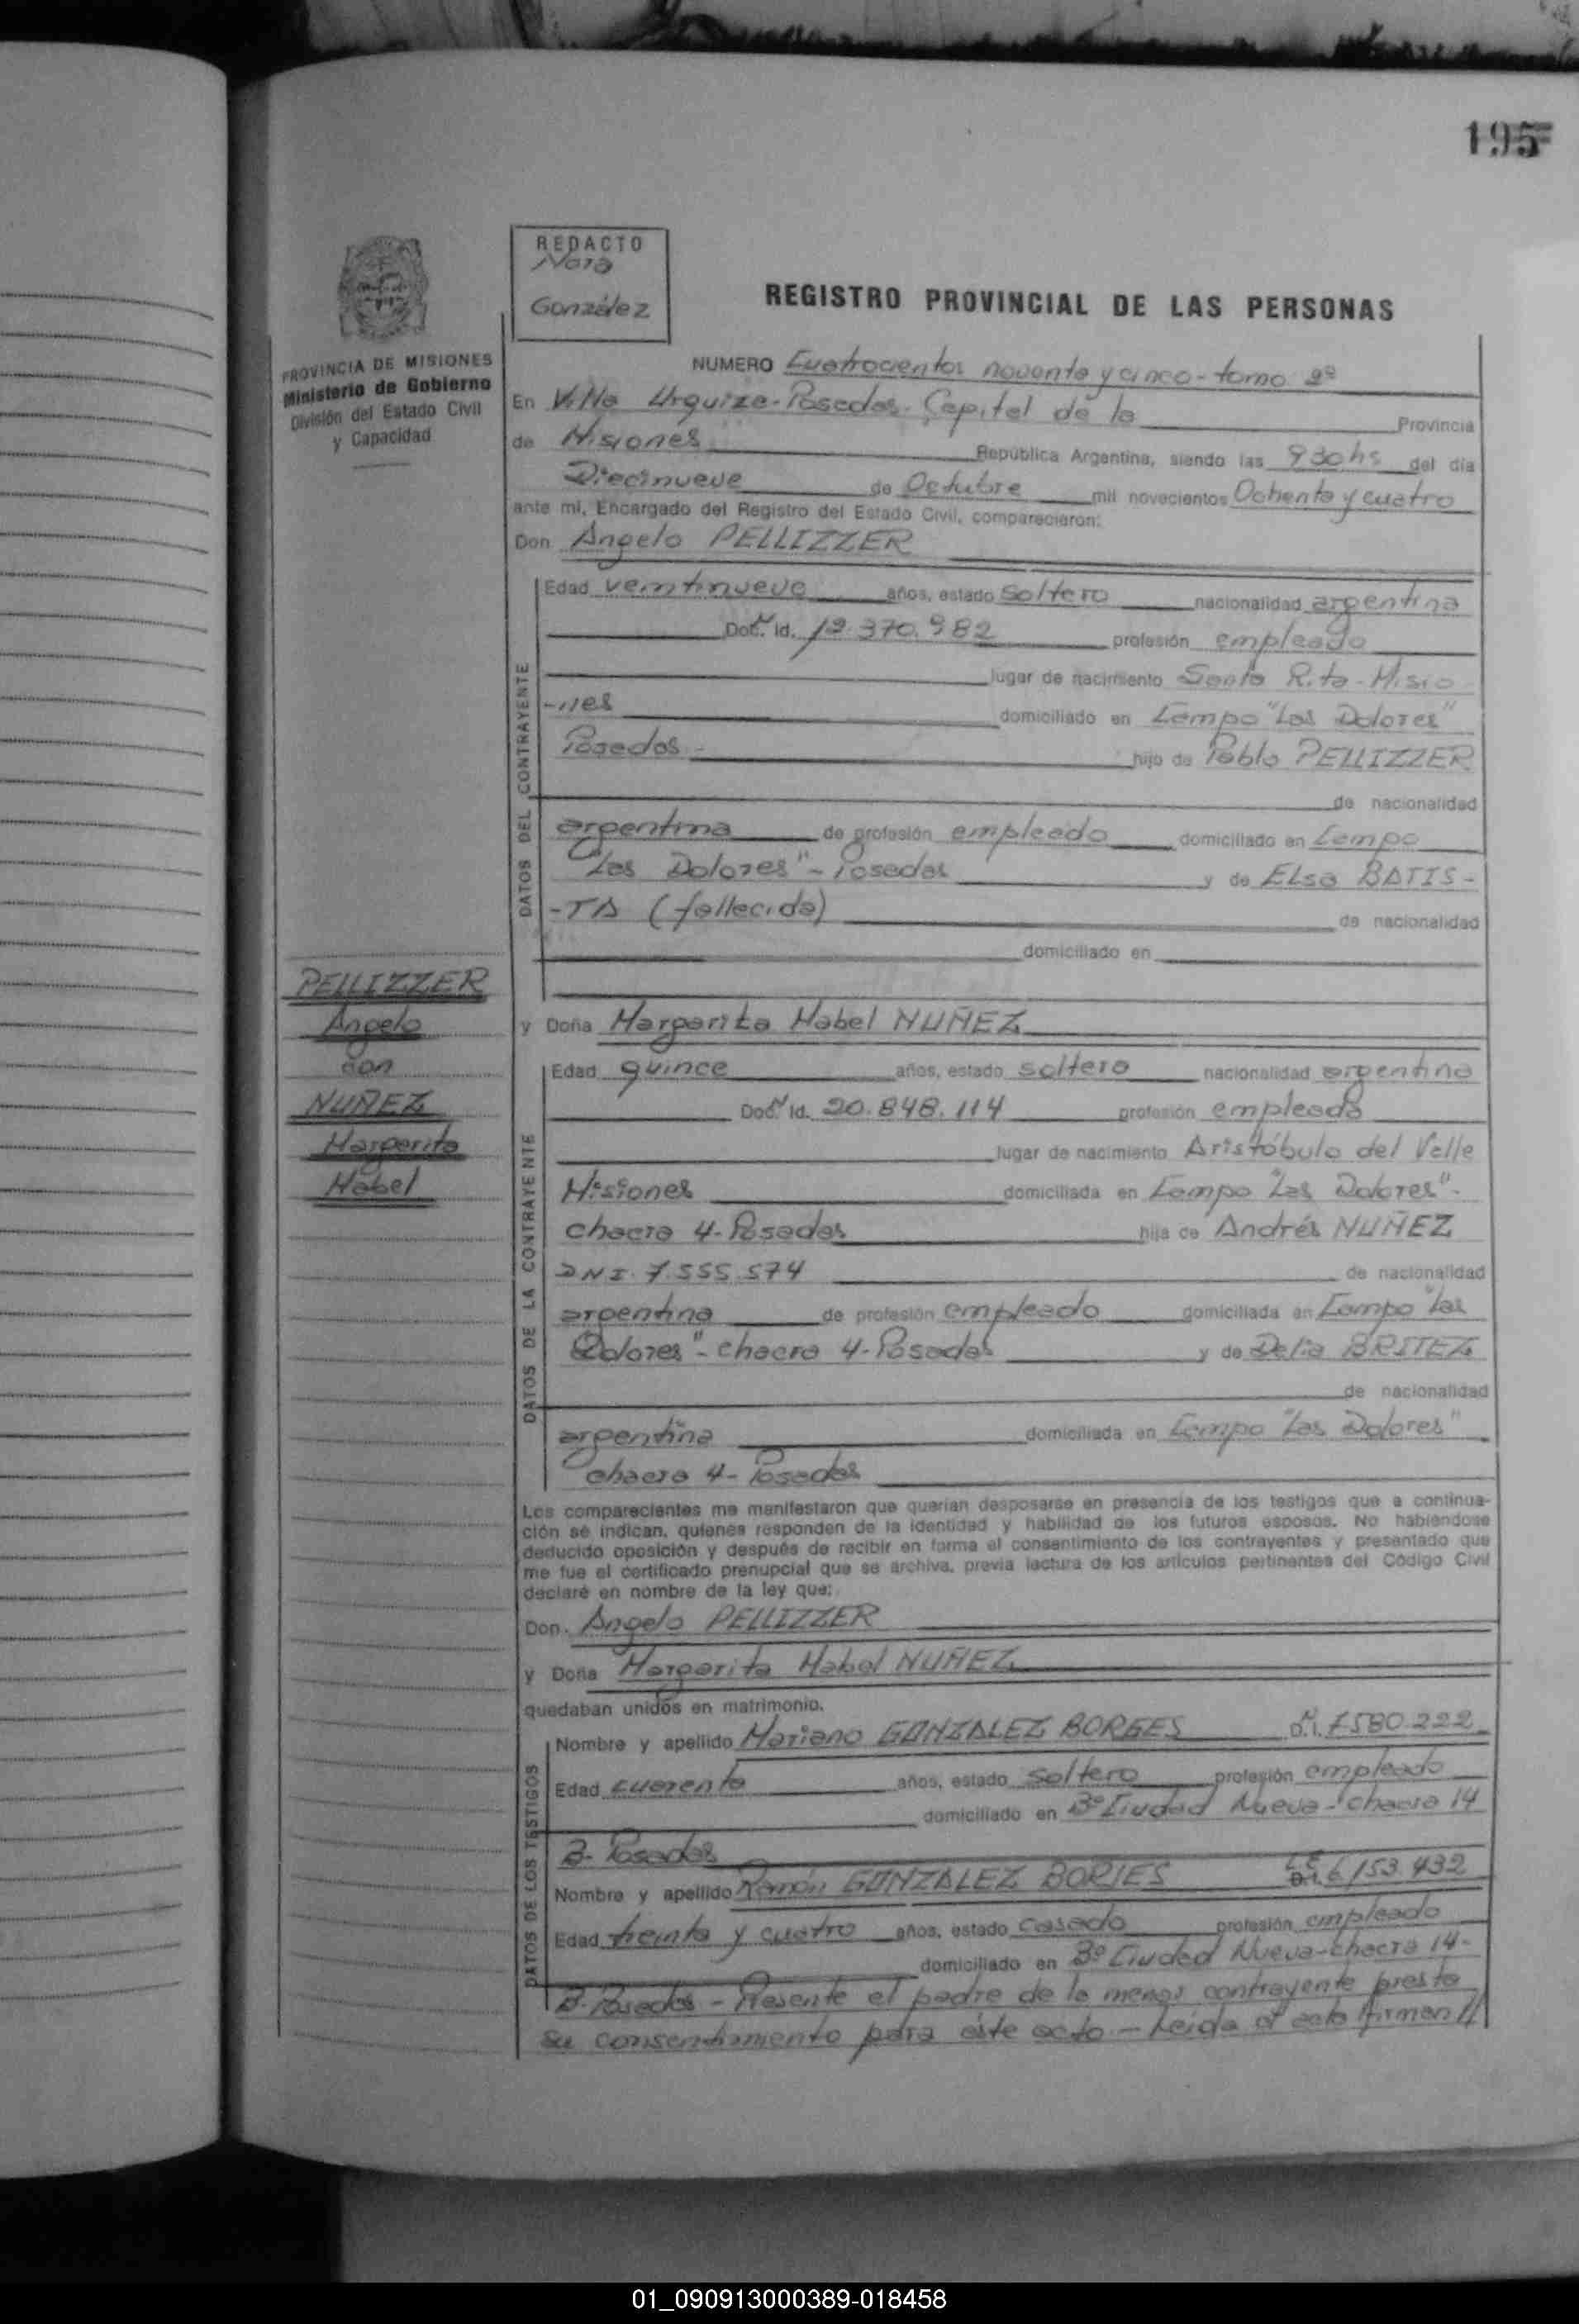 195
REDACTO
Nora
González
REGISTRO PROVINCIAL DE LAS PERSONAS
PROVINCIA DE MISIONES
Ministerio de Gobierno
División del Estado Civil
y Capacidad
NUMERO Cuatrocientos noventa y cinco - tomo 2º
En Villa Urquiza - Posadas - Capital de la Provincia
de Misiones República Argentina, siendo las 930 hs del día
Diecinueve de Octubre mil novecientos Ochenta y cuatro
ante mí, Encargado del Registro del Estado Civil, comparecieron:
Don Angelo PELLIZZER
DATOS DEL CONTRAYENTE
Edad veintinueve años, estado soltero nacionalidad argentina
Doc. Id. 12.370.982 profesión empleado
lugar de nacimiento Santa Rita - Misio
-nes domiciliado en Campo "Las Dolores"
Posadas - hijo de Pablo PELLIZZER
de nacionalidad
argentina de profesión empleado domiciliado en Campo
"Las Dolores" - Posadas y de Elsa BATIS-
-TA (fallecida) de nacionalidad
domiciliado en
PELLIZZER
Angelo
con
NUÑEZ
Margarita
Mabel
y Doña Margarita Mabel NUÑEZ
DATOS DE LA CONTRAYENTE
Edad quince años, estado soltera nacionalidad argentina
Doc. Id. 20.848.114 profesión empleada
lugar de nacimiento Aristóbulo del Valle
Misiones domiciliada en Campo "Las Dolores" -
chacra 4 - Posadas hija de Andrés NUÑEZ
DNI. 7.555.574 de nacionalidad
argentina de profesión empleado domiciliada en Campo "Las
Dolores" - chacra 4 - Posadas y de Delia BRITEZ
de nacionalidad
argentina domiciliada en Campo "Las Dolores"
chacra 4 - Posadas
Los comparecientes me manifestaron que querían desposarse en presencia de los testigos que a continua-
ción se indican, quienes responden de la identidad y habilidad de los futuros esposos. No habiéndose
deducido oposición y después de recibir en forma el consentimiento de los contrayentes y presentado que
me fue el certificado prenupcial que se archiva, previa lectura de los artículos pertinentes del Código Civil
declaré en nombre de la ley que:
Don. Angelo PELLIZZER
y Doña Margarita Mabel NUÑEZ
quedaban unidos en matrimonio.
DATOS DE LOS TESTIGOS
Nombre y apellido Mariano GONZALEZ BORGES D.N.I. 7580.222
Edad cuarenta años, estado soltero profesión empleado
domiciliado en Bº Ciudad Nueva - chacra 14
B - Posadas
Nombre y apellido Ramón GONZALEZ BORJES L.E. 6.153.432
Edad treinta y cuatro años, estado casado profesión empleado
domiciliado en Bº Ciudad Nueva - chacra 14 -
B - Posadas - Presente el padre de la menor contrayente presta
su consentimiento para éste acto - Leida el acta firman //
01_090913000389-018458